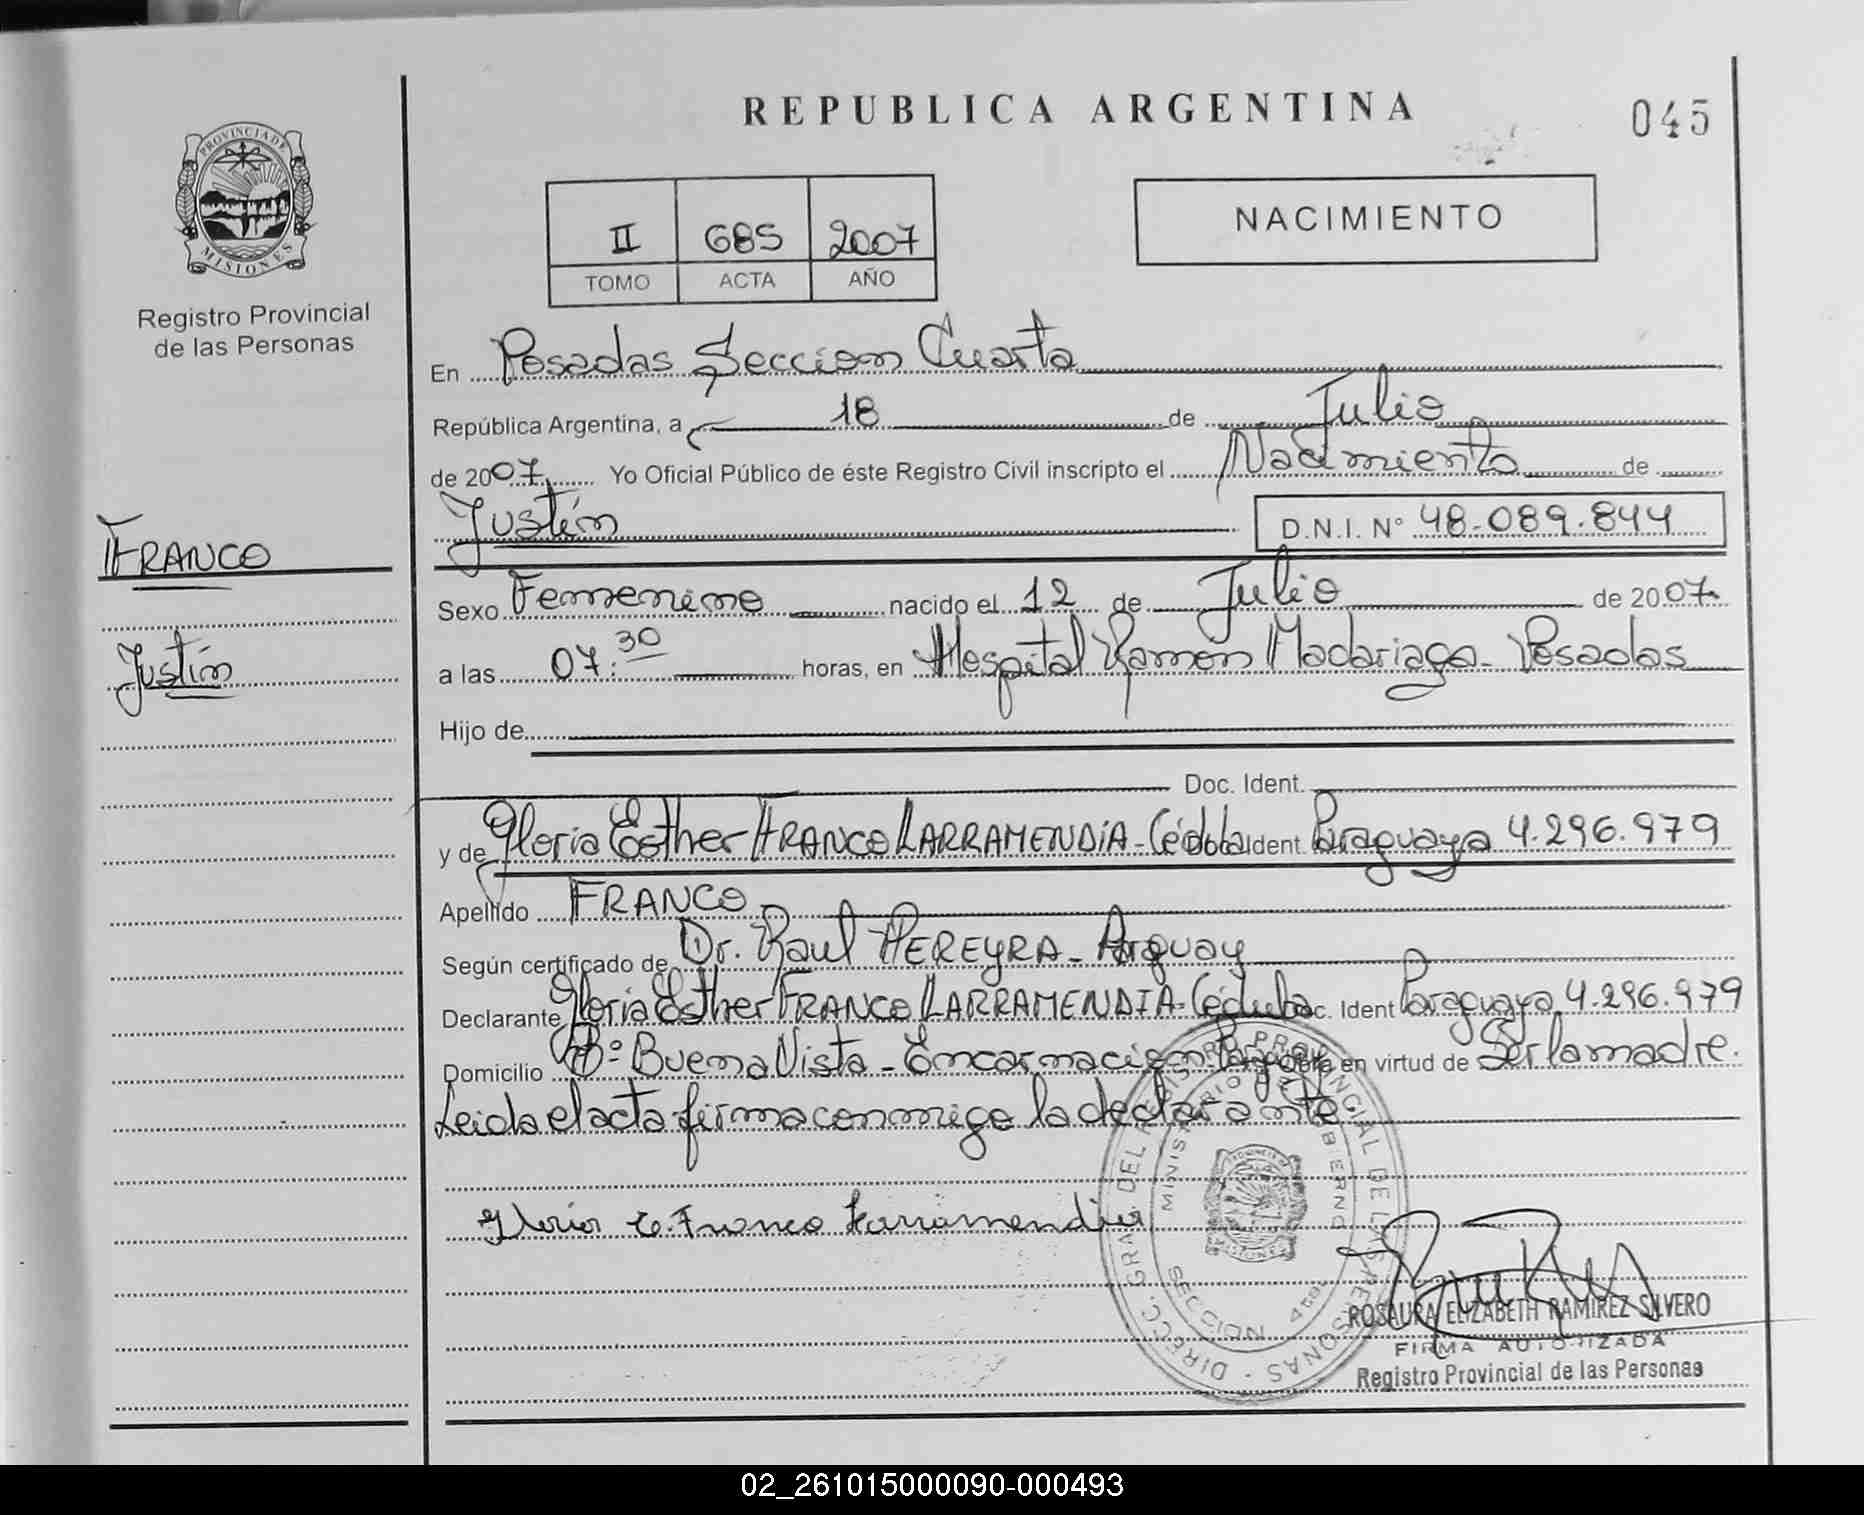 REPUBLICA ARGENTINA
045
PROVINCIA DE
MISIONES
Registro Provincial
de las Personas
II
685
2007
TOMO
ACTA
AÑO
NACIMIENTO
FRANCO
Justín
En Posadas Sección Cuarta
República Argentina, a 18 de Julio
de 2007 Yo Oficial Público de éste Registro Civil inscripto el Nacimiento de
Justín D.N.I. N° 48.089.844
Sexo Femenino nacido el 12 de Julio de 2007
a las 07:30 horas, en Hospital Ramon Madariaga - Posadas
Hijo de
Doc. Ident.
y de Gloria Esther FRANCO LARRAMENDIA - Cédula Ident. Paraguaya 4.296.979
Apellido FRANCO
Según certificado de Dr. Raul PEREYRA - Arquay
Declarante Gloria Esther FRANCO LARRAMENDIA - Cédula Doc. Ident Paraguaya 4.296.979
Domicilio B° Buena Vista - Encarnacion - Paraguay Obra en virtud de Ser la madre.
Leida el acta firma conmigo la declarante
Gloria E. Franco Larramendia
DIRECC. GRAL. DEL REGISTRO PROVINCIAL DE LAS PERSONAS
MINISTERIO DE GOBIERNO
SECCION 4ta.
MISIONES
ROSAURA ELIZABETH RAMIREZ SILVERO
FIRMA AUTORIZADA
Registro Provincial de las Personas
02_261015000090-000493